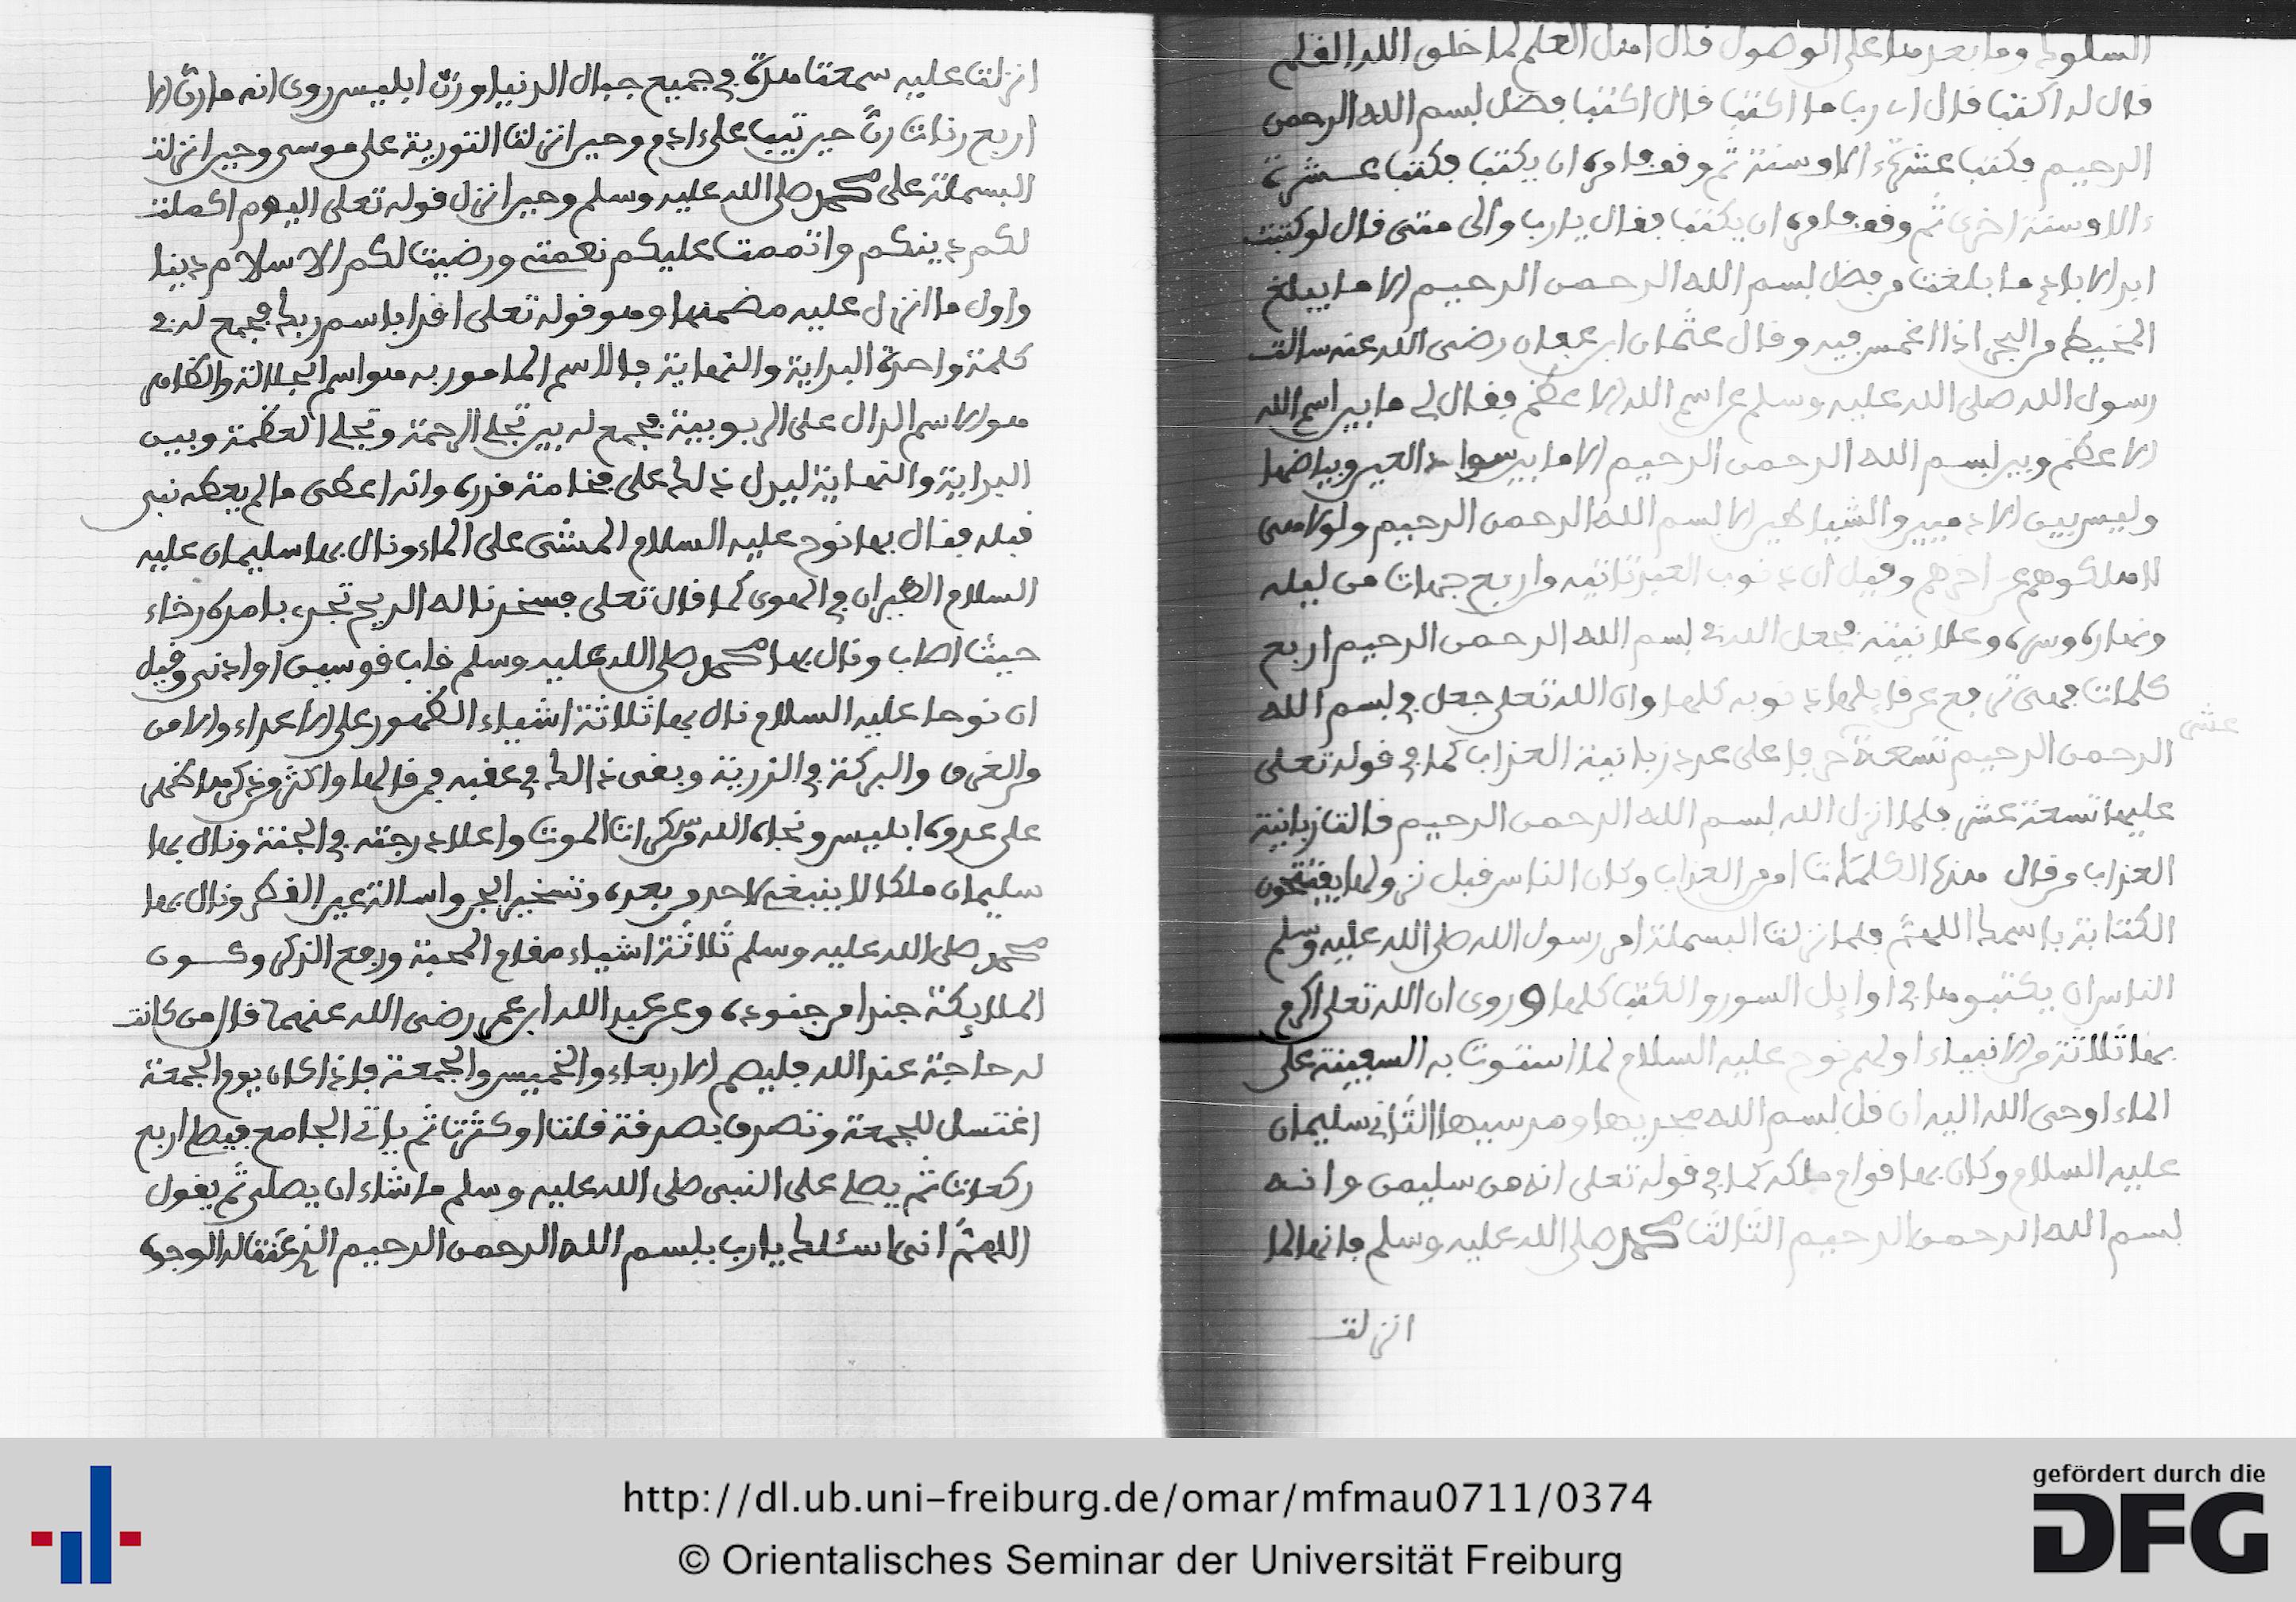 السلوك وما بعد هذا على الوصول قال اهل العلم لما خلق الله القلم
قال له اكتب قال اي رب ما اكتب قال اكتب فضل بسم الله الرحمن
الرحيم فكتب عشرة ءالاف سنة ثم وقف فامره ان يكتب فكتب عشرة
ءالاف سنة اخرى ثم وقف فامره ان يكتب فقال يارب والى متى قال لو كتبت
ابد الاباد ما بلغت من فضل بسم الله الرحمن الرحيم الا ما يبلغ
المخيط من البحر اذا اغمس فيه وقال عثمان ابن عفان رضي الله عنه سالت
رسول الله صلى الله عليه وسلم عن اسم الله الاعظم فقال لي ما بين اسم الله
الاعظم وبين بسم الله الرحمن الرحيم الا ما بين سواد العين وبياضها
وليس بين الادميين والشياطين الا بسم الله الرحمن الرحيم ولولا هي
لاهلكوهم عن اخرهم وقيل ان ذنوب العبد تاتيه من اربع جهات من ليله
ونهاره وسره وعلانيته فجعل الله في بسم الله الرحمن الرحيم اربع
كلمات فهي ترفع عن قايلها ذنوبه كلها وان الله تعلى جعل في بسم الله
الرحمن الرحيم تسعة عشر حرفا على عدد زبانية العذاب كما في قوله تعلى
عليها تسعة عشر فلما انزل الله بسم الله الرحمن الرحيم قالت زبانية
العذاب من قال هذه الكلمات امن من العذاب وكان الناس قبل نزولها يفتتحون
الكتابة باسمك اللهم فلما نزلت البسملة امر رسول الله صلى الله عليه وسلم
الناس ان يكتبوها في اوايل السور والكتب كلها وروي ان الله تعلى اكرم
بها ثلاثة من الانبياء اولهم نوح عليه السلام لما استوت به السفينة على
الماء اوحى الله اليه ان قل بسم الله مجريها ومرسيها الثاني سليمان
عليه السلام وكان بها قوام ملكه كما في قوله تعلى انه من سليمن وانه
بسم الله الرحمن الرحيم الثالث محمد صلى الله عليه وسلم فانها لما
انزلت
انزلت عليه سمعت هدة في جميع جبال الدنيا ورن ابليس روي انه ما رن الا
اربع رنات رن حين تيب على ءادم وحين انزلت التورية على موسى وحين انزلت
البسملة على محمد صلى الله عليه وسلم وحين انزل قوله تعلى اليوم اكملت
لكم دينكم واتممت عليكم نعمتي ورضيت لكم الاسلام دينا
واول ما انزل عليه مضمنها وهو قوله تعلى اقرا باسم ربك فجمع له في
كلمة واحدة البداية والنهاية فالاسم المامور به هو اسم الجلالة والكلام
هو الاسم الدال على الربوبية فجمع له بين تجلي الرحمة وتجلي العظمة وبين
البداية والنهاية ليدل ذلك على فخامة قدره وانه اعطي ما لم يعطه نبي
قبله فقال بها نوح عليه السلام المشي على الماء ونال بها سليمان عليه
السلام الطيران في الهوى كما قال تعلى فسخرنا له الريح تجري بامره رخاء
حيث اصاب ونال بها محمد صلى الله عليه وسلم قاب قوسين او ادنى وقيل
ان نوحا عليه السلام نال بها ثلاثة اشياء الظهور على الاعداء والامن
من الغرق والبركة في الذرية وبقي ذلك في عقبه فمن قالها واكثر من ذكرها ظهر
على عدوه ابليس ونجاه الله من سكرات الموت واعلا درجته في الجنة ونال بها
سليمان ملكا لا ينبغي لاحد من بعده وتسخير الجن واسالة عين القطر ونال بها
محمد صلى الله عليه وسلم ثلاثة اشياء مقام المحبة ورفع الذكر وكون
الملايكة جندا من جنوده وعن عبد الله ابن عمر رضي الله عنهما قال من كانت
له حاجة عند الله فليصم الاربعاء والخميس والجمعة فاذا كان يوم الجمعة
اغتسل للجمعة وتصدق بصدقة قلت او كثرت ثم ياتي الجامع فيصلي اربع
ركعات ثم يصلي على النبي صلى الله عليه وسلم ما شاء ان يصلي ثم يقول
اللهم اني اسئلك يارب ببسم الله الرحمن الرحيم الذي عنت له الوجوه
http://dl.ub.uni-freiburg.de/omar/mfmau0711/0374
© Orientalisches Seminar der Universität Freiburg
gefördert durch die
DFG